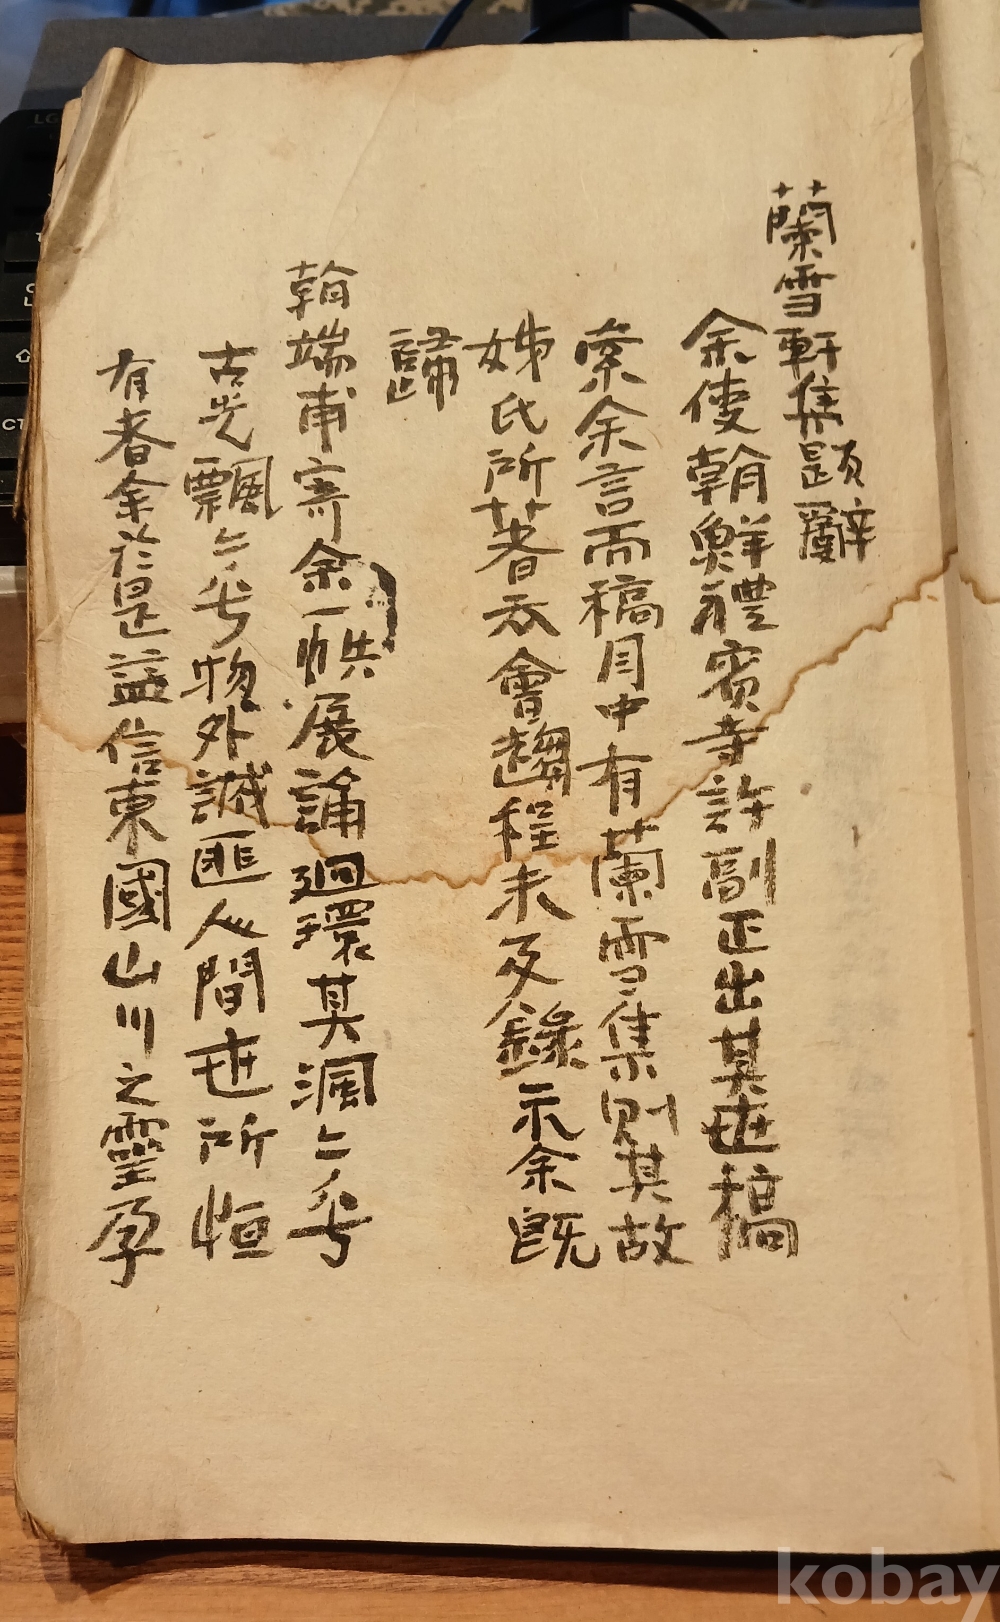 蘭雪軒集題辭
余使朝鮮禮賓寺許副正出其世稿
索余言而稿囯中有蘭雪集則其故
姊氏所著云會趨程未及錄示余旣
歸
翰端甫寄余一帙展誦廻環其渢々乎
古光飄々乎物外誠匪人間世所恒
有者余於是益信東國山川之靈孕
kobay